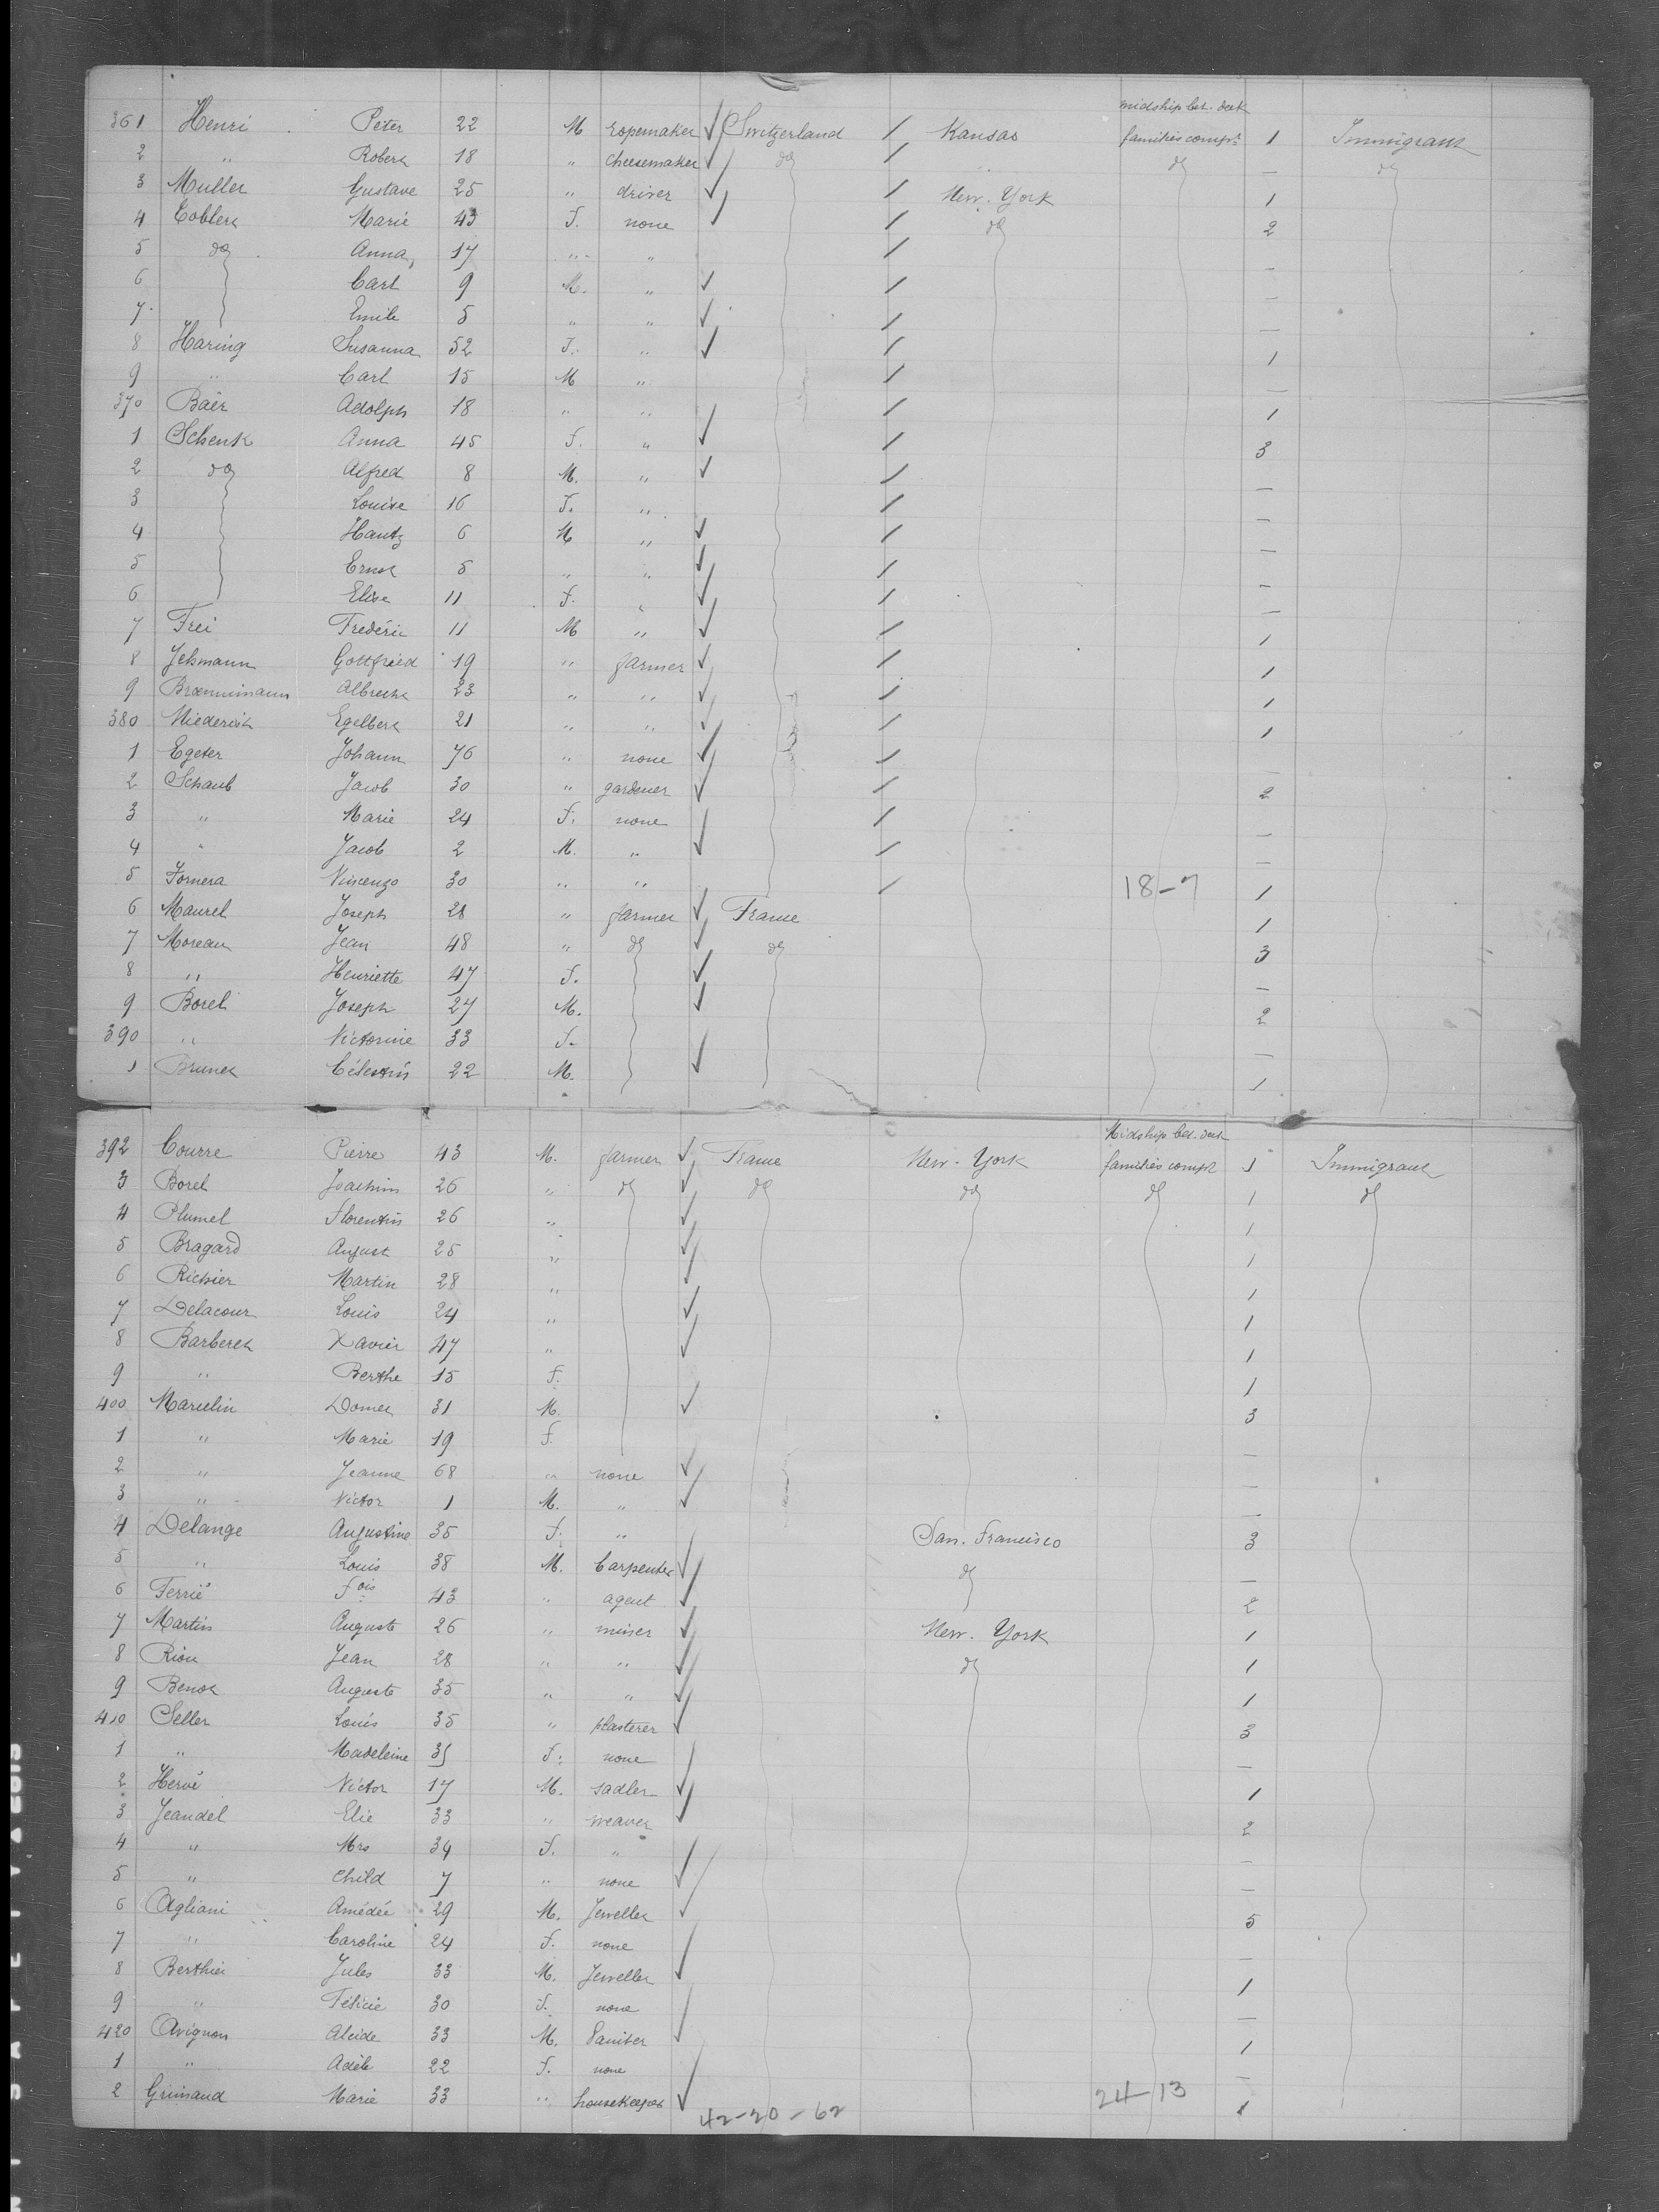 midship bet. deck
361 Henri Peter 22 M ropemaker Switzerland Kansas families compt 1 Immigrant
2 " Robert 18 " cheesemaker do " do — do
3 Muller Gustave 25 " driver New-York 1
4 Marie 43 F. none do 2
5 do Anna 17 " " —
6 Carl 9 M. " —
7 Emile 5 " " —
8 Haring Susanna 52 F. " 1
9 " Carl 15 M " —
370 Baër Adolph 18 " " 1
1 Schenk Anna 45 F. " 3
2 do Alfred 8 M. " —
3 Louise 16 F. " —
4 Hantz 6 M " —
5 Ernst 5 " " —
6 Elise 11 F. " —
7 Frei Frederic 11 M " 1
8 Gottfried 19 " farmer 1
9 Broennimann Albrecht 23 " " 1
380 Egelbert 21 " " 1
1 Egeter Johann 76 " none —
2 Schaub Jacob 30 " gardener 2
3 " Marie 24 F. none —
4 " Jacob 2 M. " —
5 Fornera Vincenzo 30 " " 18-7 1
6 Maurel Joseph 28 " farmer France 1
7 Moreau Jean 48 " do do 3
8 " Henriette 47 F. —
9 Borel Joseph 27 M. 2
390 " Victorine 33 F. —
1 Brunet Célestin 22 M. 1
Midship bet. deck
392 Courre Pierre 43 M. farmer France New-York families compt 1 Immigrant
3 Borel Joachim 26 " do do do do 1 do
4 Plumel Florentin 26 " 1
5 Bragard August 25 " 1
6 Richier Martin 28 " 1
7 Delacour Louis 24 " 1
8 Barberet Xavier 47 " 1
9 " Berthe 15 F. 1
400 Marcelin Domer 31 M. 3
1 " Marie 19 F. —
2 " Jeanne 68 " none —
3 " Victor 1 M. " —
4 Delange Augustine 35 F. " San. Francisco 3
5 " Louis 38 M. Carpenter do —
6 Ferrié Fois 43 " agent 2
7 Martin Auguste 26 " miner New. York 1
8 Riou Jean 28 " " do 1
9 Benot Auguste 35 " " 1
410 Seller Louis 35 " plasterer 3
1 " Madeleine 35 F. none —
2 Hervé Victor 17 M. sadler 1
3 Jeandel Elie 33 " weaver 2
4 " Mrs 34 F. " —
5 " Child 7 " none —
6 Agliani Amédée 29 M. Jeweller 5
7 " Caroline 24 F. none —
8 Berthier Jules 33 M. Jeweller 1
9 " Félicie 30 F. none —
420 Avignon Alcide 33 M. 1
1 " Adèle 22 F. none —
2 Grimaud Marie 33 " housekeeper 24-13 1
42-20-62